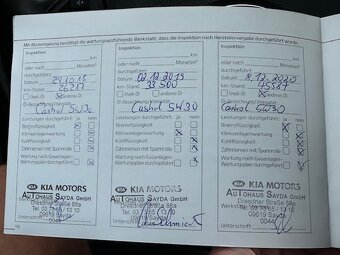 Mit Abstempelung bestätigt die wartungsausführende Werkstatt, dass die Inspektion nach Herstellervorgabe durchgeführt wurde.
Inspektion
km
oder nach Monaten*
durchgeführt
Datum
km-Stand
Shell-Öl anderes Öl
Öl-Bezeichnung/Viskosität
Castrol 5W30
Leistungen durchgeführt: ja nein
Bremsflüssigkeit
Klimaanlagenwartung
Kundendienst
Zahnriemen mit Spannrolle
Wartung nach Gasanlagen-
Wartungsplan durchgeführt
KIA MOTORS
AUTOHAUS SAYDA GmbH
Dresdner Straße 66a
09619 Sayda
Unterschrift
18
Inspektion
km
oder nach Monaten*
durchgeführt
Datum 02.12.2019
km-Stand 33 500
Shell-Öl anderes Öl
Öl-Bezeichnung/Viskosität
Castrol 5W30
Leistungen durchgeführt: ja nein
Bremsflüssigkeit
Klimaanlagenwartung
Kundendienst
Zahnriemen mit Spannrolle
Wartung nach Gasanlagen-
Wartungsplan durchgeführt
KIA MOTORS
AUTOHAUS SAYDA GmbH
Dresdner Straße 66a
09619 Sayda
Unterschrift
Inspektion
km
oder nach Monaten*
durchgeführt
Datum 8.12.2020
km-Stand 45587
Shell-Öl anderes Öl
Öl-Bezeichnung/Viskosität
Castrol 5W30
Leistungen durchgeführt: ja nein
Bremsflüssigkeit
Klimaanlagenwartung
Kundendienst
Zahnriemen mit Spannrolle
Wartung nach Gasanlagen-
Wartungsplan durchgeführt
KIA MOTORS
AUTOHAUS SAYDA GmbH
Dresdner Straße 66a
09619 Sayda
Unterschrift